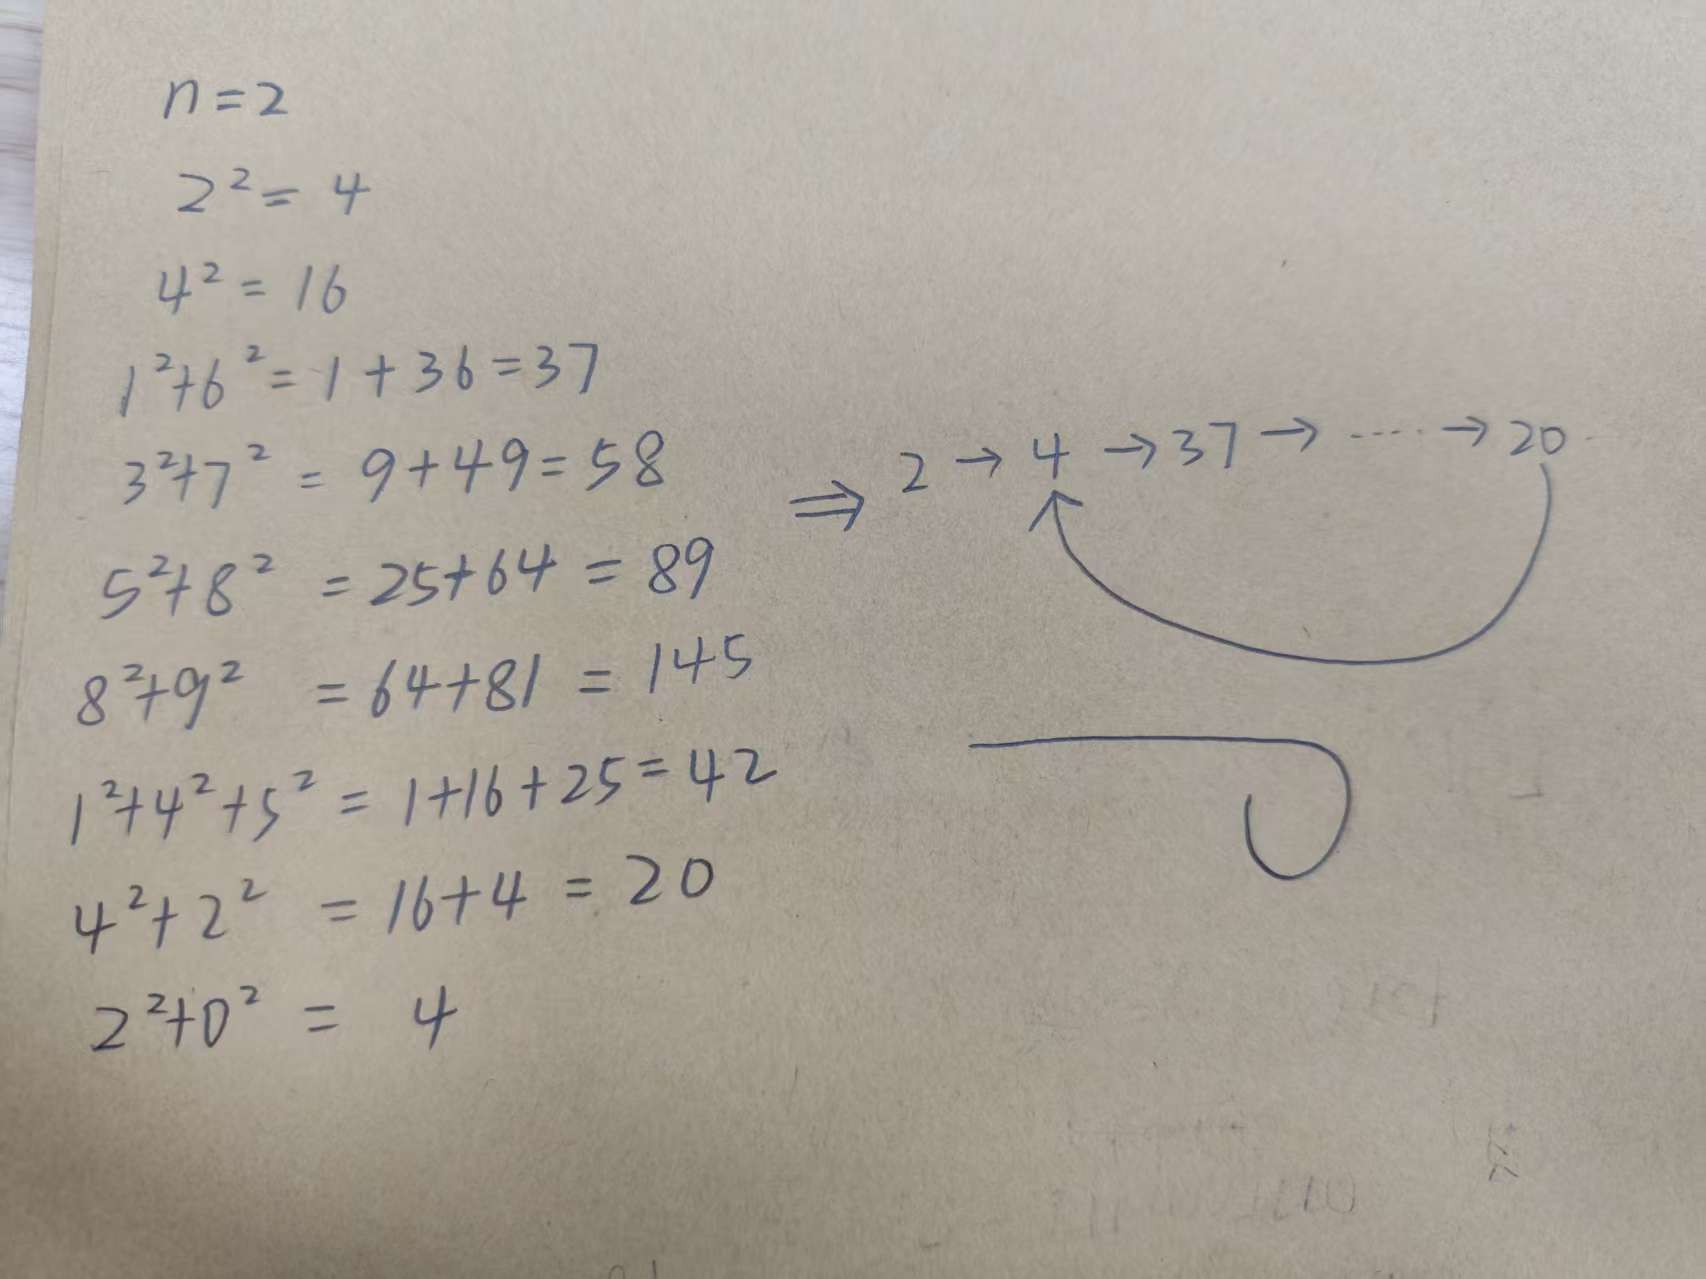 n=2
2²=4
4²=16
1²+6²=1+36=37
3²+7²=9+49=58
5²+8²=25+64=89
8²+9²=64+81=145
1²+4²+5²=1+16+25=42
4²+2²=16+4=20
2²+0²=4
⇒ 2→4→37→....→20